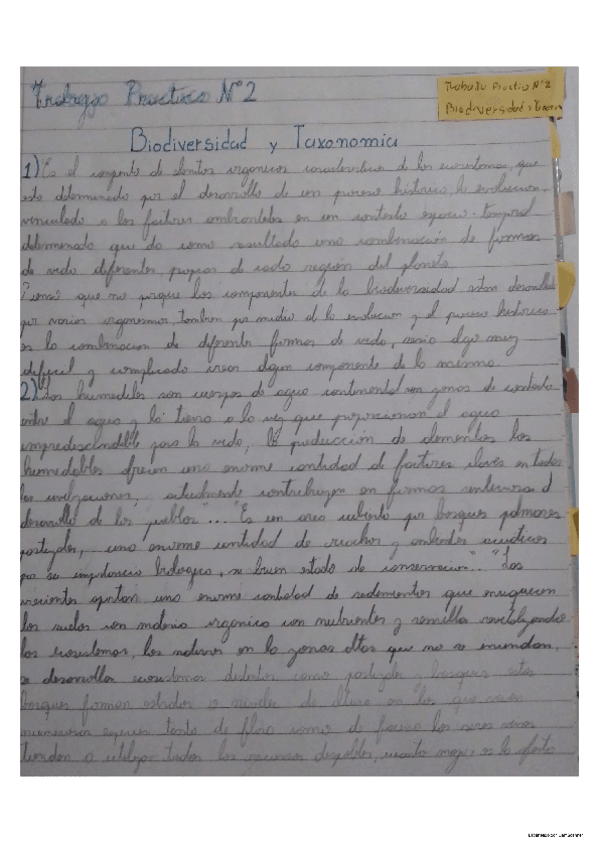 Trabajo Practico N°2
Trabajo Practico N°2
Biodiversidad y Taxon
Biodiversidad y Taxonomia
1) Es el conjunto de elentos organicos caracteristicos de los ecosistemas, que
esta determinado por el desarrollo de un proceso historico, la evolucion
vinculado a los factores ambientales en un contexto espacio-temporal
determinado que da como resultado una combinación de formas
de vida diferentes, propias de cada región del planeta
Pienso que no porque los componentes de la biodiversidad estan desarrollados
por varios organismos, tambien por medio de la evolucion y el proceso historico
es la combinacion de diferente formas de vida, seria algo muy
dificil y complicado crear algun componente de la misma
2) "Los humedales son cuerpos de agua continental con zonas de contacto
entre el agua y la tierra a la vez que proporcionan el agua
para la vida, la producción de elementos los
ofrecen una enorme cantidad de factores claves en todas
las actualmente contribuyen en formas al
desarrollo de los pueblos"..."Es un area cubierta por bosques palmares
pastizales, una enorme cantidad de riachos y ambientes acuaticos
por su importancia biologica, su buen estado de conservacion"..."Las
crecientes aportan una enorme cantidad de sedimentos que enriquecen
los suelos con materia organica con nutrientes y semillas revitalizando
los ecosistemas, los en la zonas altas que no se inundan,
se desarrolla ecosistemas distintos como pastizales y bosques estos
bosques forman estratos o niveles de altura en los que viven
numerosas especies tanto de flora como de fauna los seres vivos
tienden a utilizar todos los recursos disponibles, cuanto mayor es la